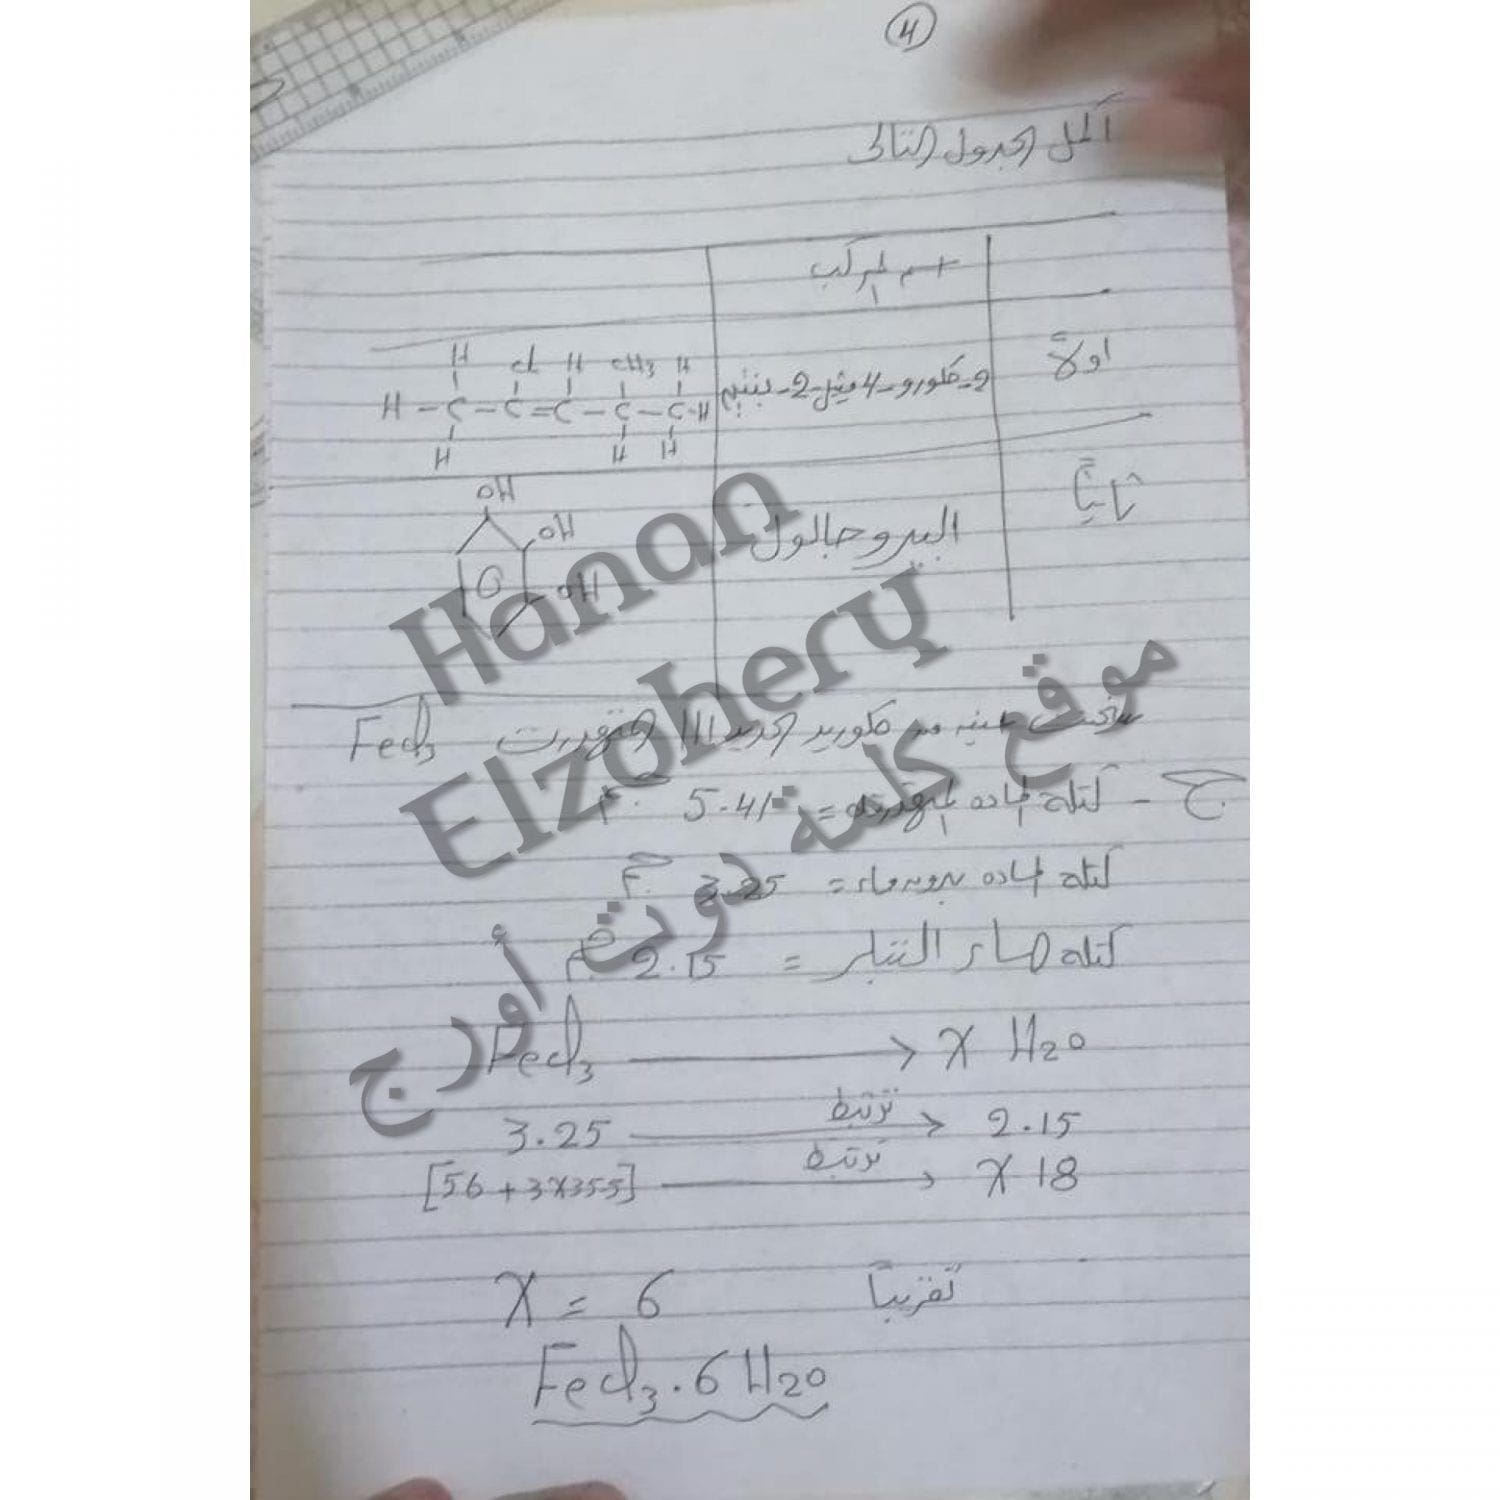 4
أكمل الجدول التالى
اسم المركب
أولاً
2-كلورو-4 ميثيل-2-بنتين
H Cl H CH3 H
H - C - C = C - C - C - H
H H H
ثانياً
البيروجالول
OH
OH
OH
سخنت عينه من كلوريد الحديد III المتهدرت FeCl3
ج - كتلة الماده المتهدرته = 5.41 جم
كتلة الماده بدون ماء = 3.25 جم
كتله ماء التبلر = 2.15 جم
FeCl3 → X H2O
3.25 ترتبط → 2.15
[56 + 3X35.5] ترتبط → X 18
X = 6 تقريباً
FeCl3 . 6 H2O
Hanan
Elzohery
موقع كلمة دوت أورج